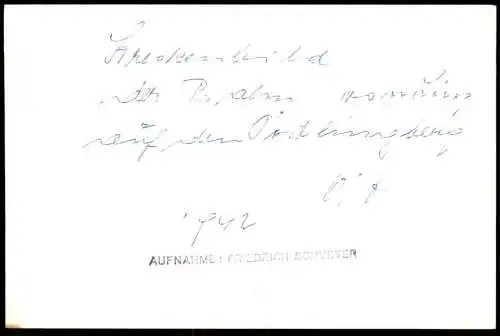 Streckenbild
der Bahn von Linz
auf den Pöstlingberg
1942
AUFNAHME: FRIEDRICH SCHUSTER